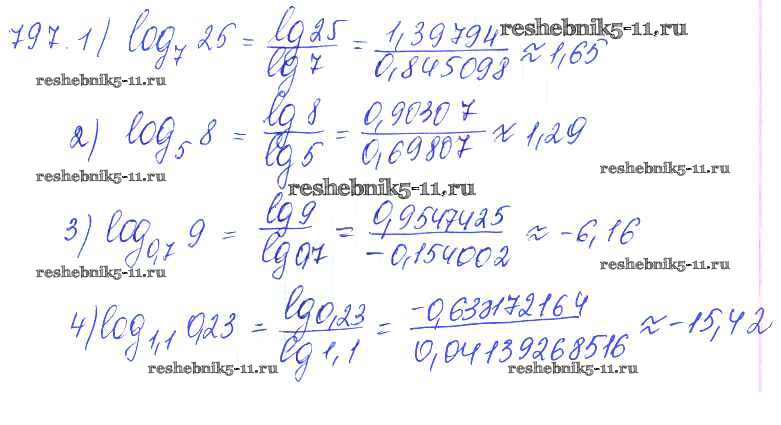 797. 1) log₇ 25 = lg25/lg7 = 1,39794/0,845098 ≈ 1,65
reshebnik5-11.ru
reshebnik5-11.ru
2) log₅ 8 = lg 8/lg5 = 0,90307/0,69807 ≈ 1,29
reshebnik5-11.ru
reshebnik5-11.ru
reshebnik5-11.ru
3) log₀,₇ 9 = lg9/lg0,7 = 0,9547425/-0,154002 ≈ -6,16
reshebnik5-11.ru
reshebnik5-11.ru
4) log₁,₁ 0,23 = lg0,23/lg1,1 = -0,638172164/0,04139268516 ≈ -15,42
reshebnik5-11.ru
reshebnik5-11.ru